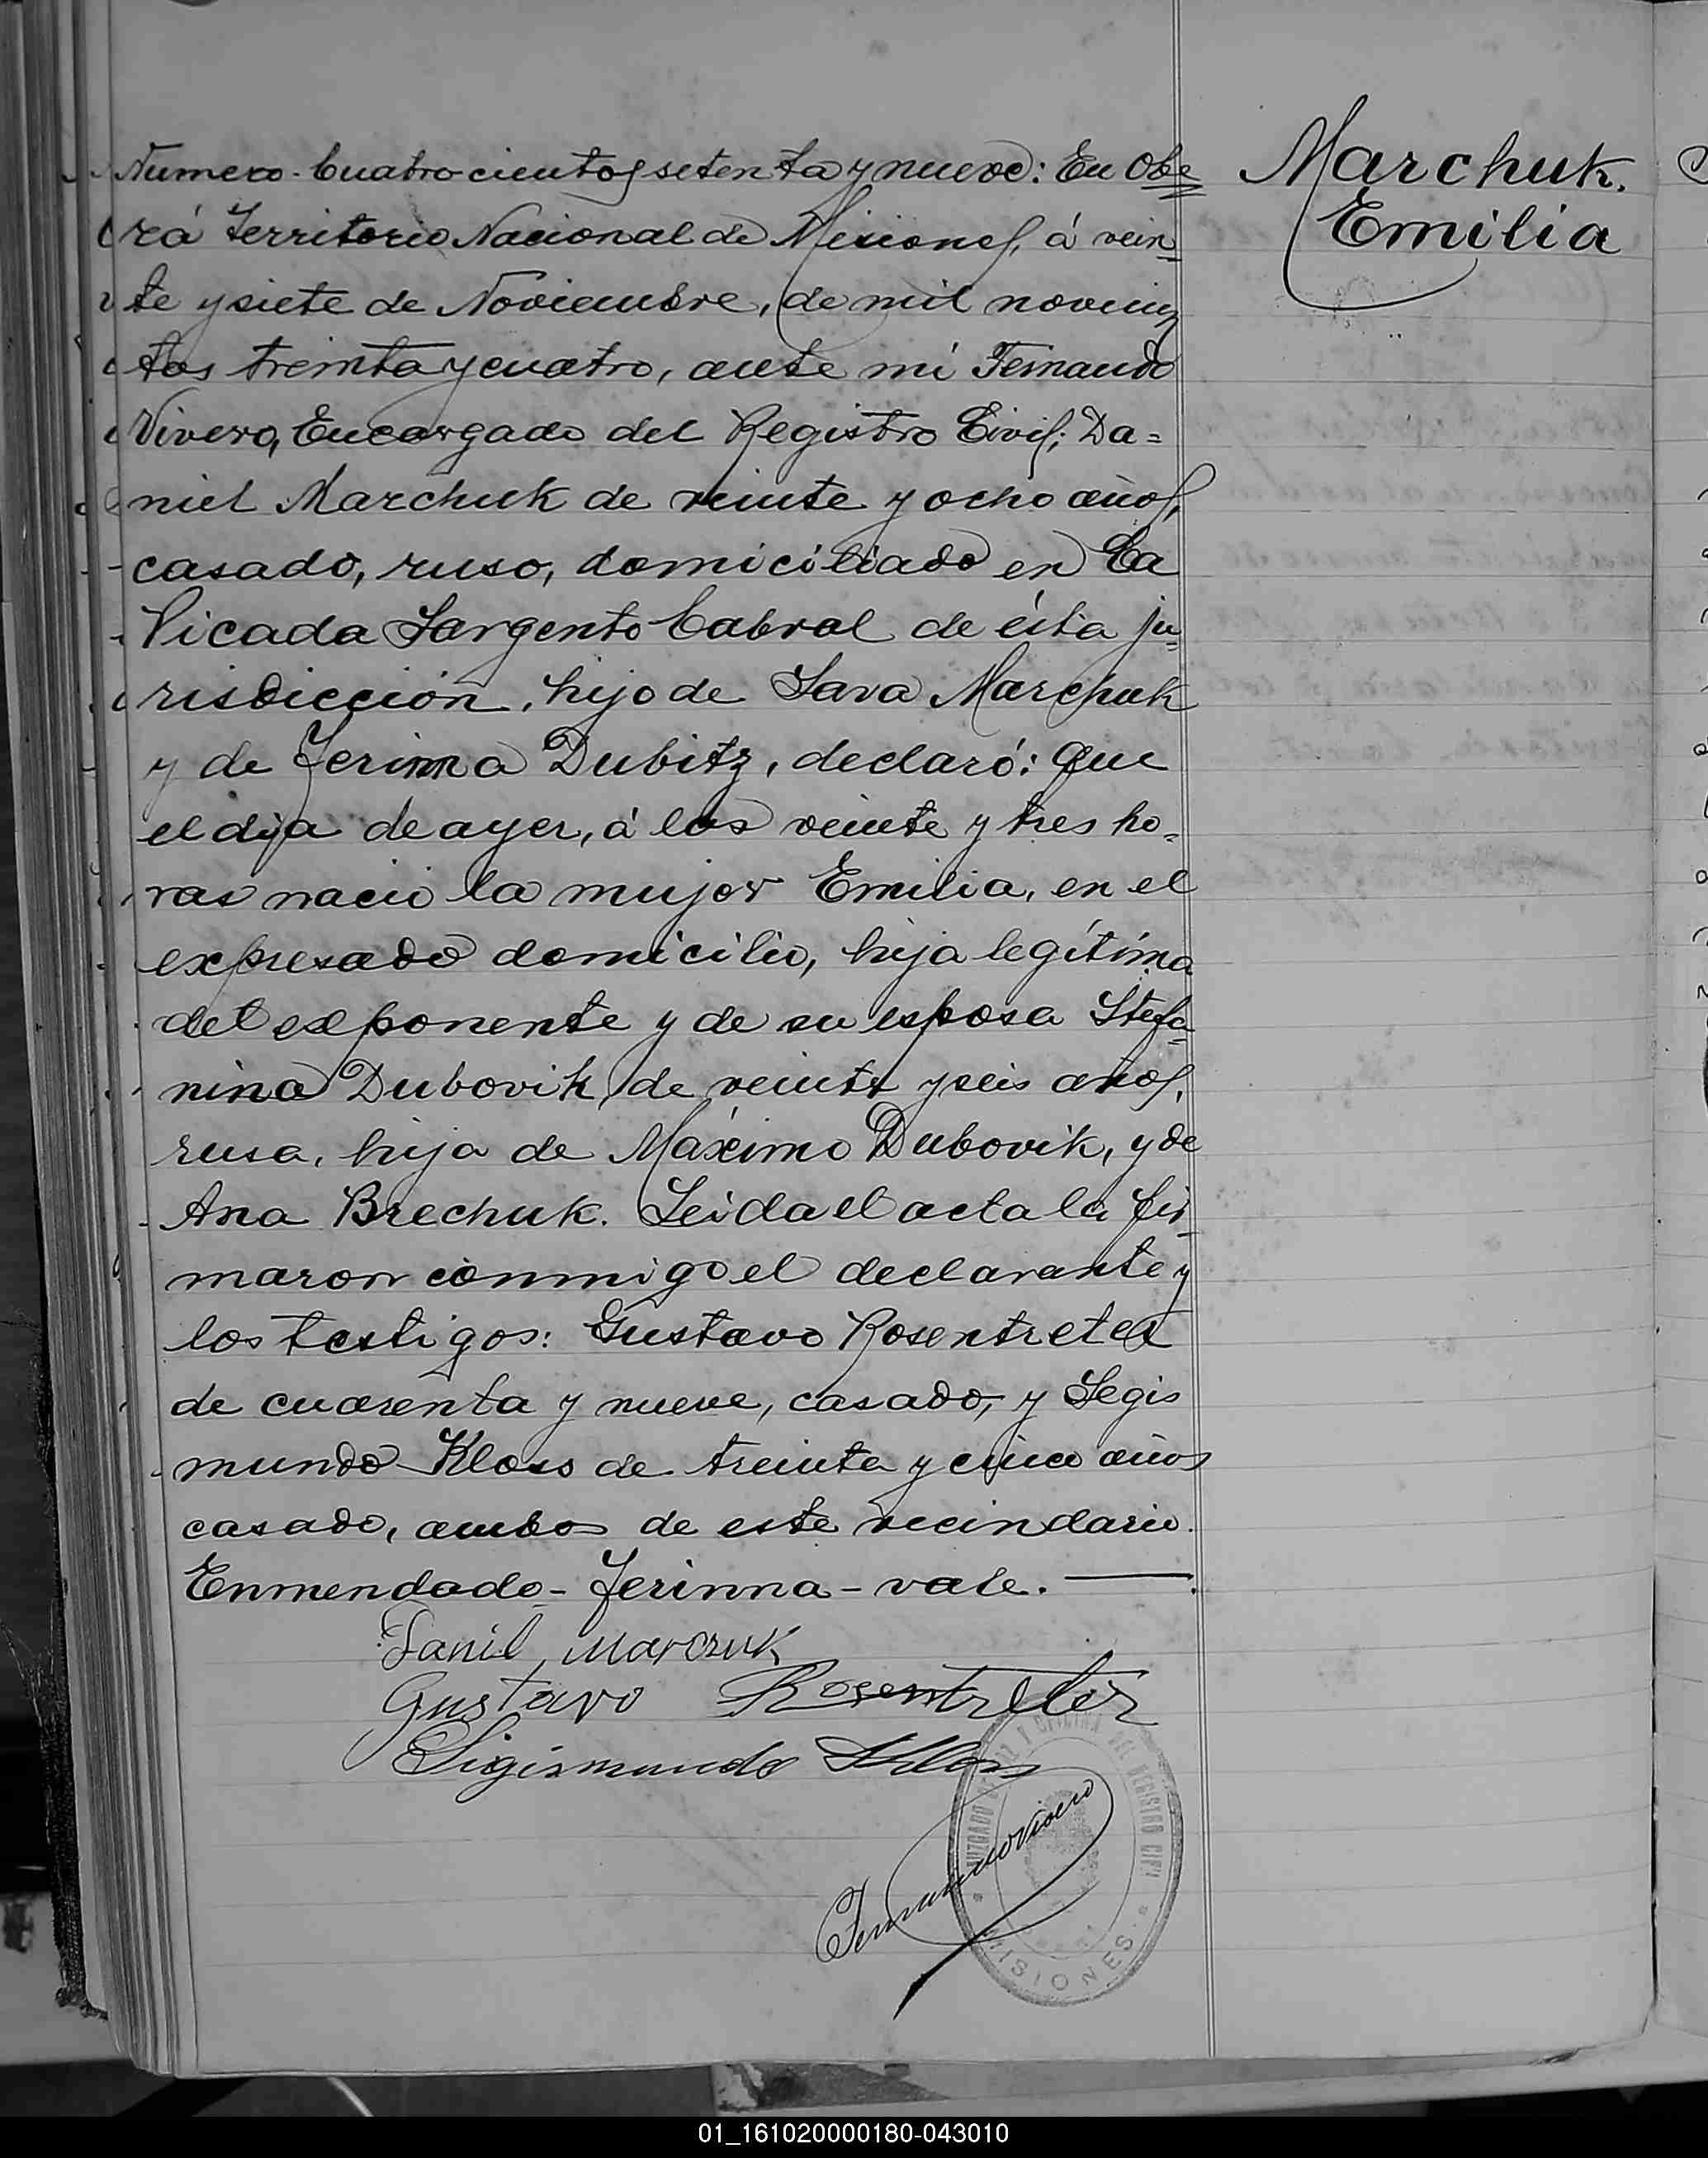 Numero Cuatrocientos setenta y nueve: En Obe
rá Territorio Nacional de Misiones, á vein
te y siete de Noviembre, de mil novecien
tos treinta y cuatro, ante mí Fernando
Vivero, Encargado del Registro Civil; Da=
niel Marchuk de veinte y ocho años,
casado, ruso, domiciliado en La
Picada Sargento Cabral de ésta ju
risdicción, hijo de Sava Marchuk
y de Jerinna Dubitz, declaró: Que
el dia de ayer, á las veinte y tres ho=
ras nació la mujer Emilia, en el
expresado domicilio, hija legítima
del exponente y de su esposa Stefa
nina Dubovik, de veinte y seis años,
rusa, hija de Máximo Dubovik, y de
Ana Brechuk. Leida el acta la fir
maron conmigo el declarante y
los testigos: Gustavo Rosentreter
de cuarenta y nueve, casado, y Segis
mundo Kloss de treinta y cinco años
casado, ambos de este vecindario.
Enmendado - Jerinna - vale.
Marchuk.
Emilia
Danil Marczuk
Gustavo Rosentreter
Sigismundo Kloss
Fernando Vivero
OFICINA DEL REGISTRO CIVIL
MISIONES
01_161020000180-043010